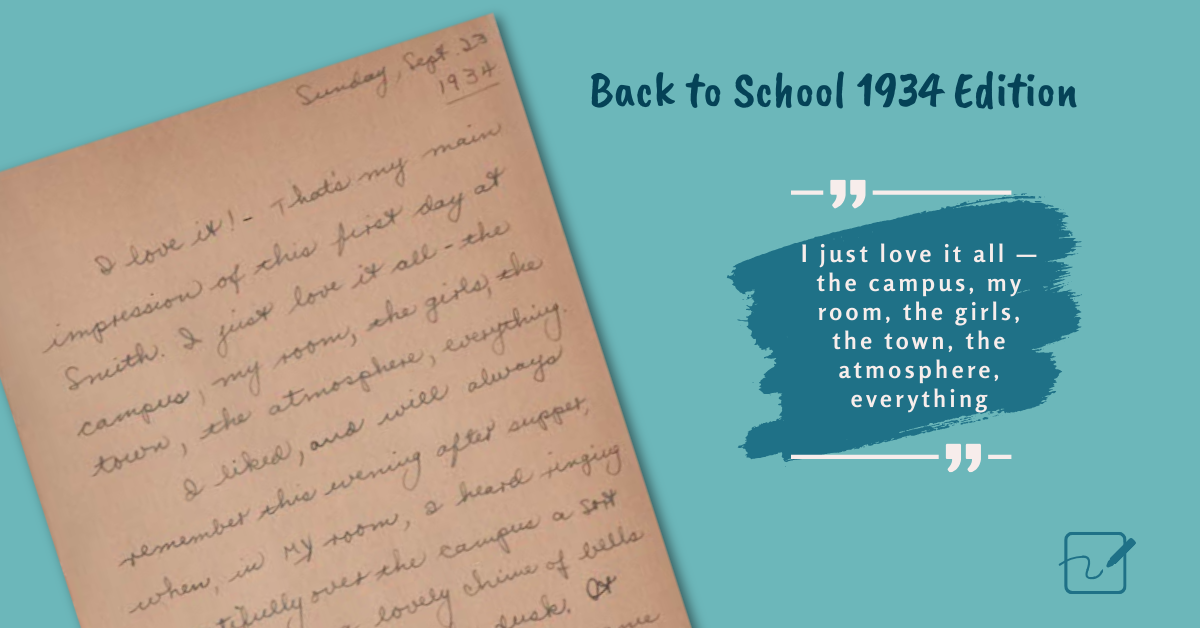 Sunday, Sept. 23
1934
I love it! - That's my main
impression of this first day at
Smith. I just love it all - the
campus, my room, the girls, the
town, the atmosphere, everything.
I liked, and will always
remember this evening after supper,
when, in my room, I heard ringing
over the campus a sort
lovely chime of bells
dusk. At
Back to School 1934 Edition
I just love it all —
the campus, my
room, the girls,
the town, the
atmosphere,
everything